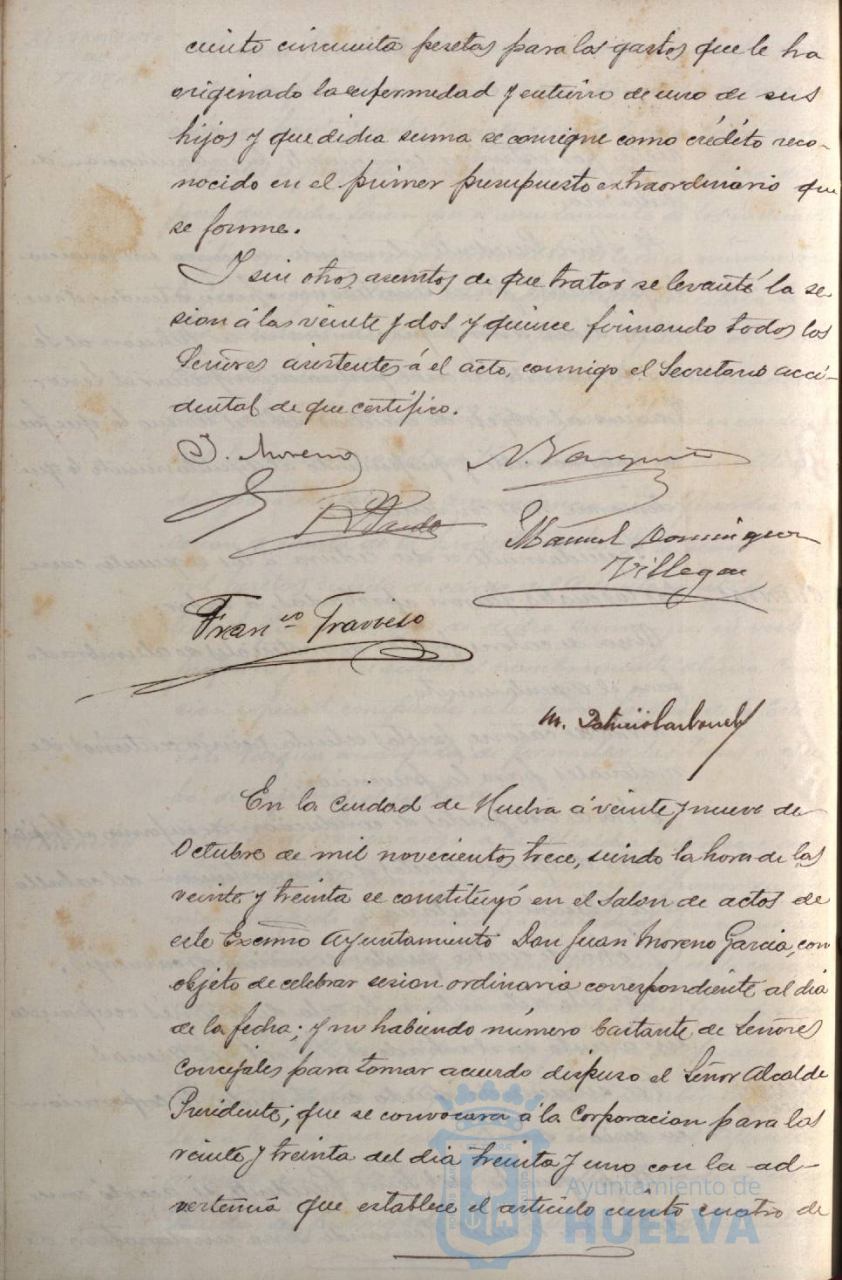 ciento cincuenta pesetas para los gastos que le ha
originado la enfermedad y entierro de uno de sus
hijos y que dicha suma se consigne como crédito reco-
nocido en el primer presupuesto extraordinario que
se forme.
Y sin otros asuntos de que tratar se levantó la se-
sion á las veinte y dos y quince firmando todos los
Señores asistentes á el acto, conmigo el Secretario acci-
dental de que certifico.
J. Moreno
N. Vazquez
Manuel Dominguez
Villegas
Fran.co Travieso
M. Patricio Carbonell
En la Ciudad de Huelva á veinte y nueve de
Octubre de mil novecientos trece, siendo la hora de las
veinte y treinta se constituyó en el Salon de actos de
este Excmo Ayuntamiento Don Juan Moreno Garcia, con
objeto de celebrar sesion ordinaria correspondiente al dia
de la fecha; y no habiendo número bastante de Señores
Concejales para tomar acuerdo dispuso el Señor Alcalde
Presidente; que se convocara á la Corporacion para las
veinte y treinta del dia treinta y uno con la ad-
vertencia que establece el articulo ciento cuatro de
Ayuntamiento de
HUELVA